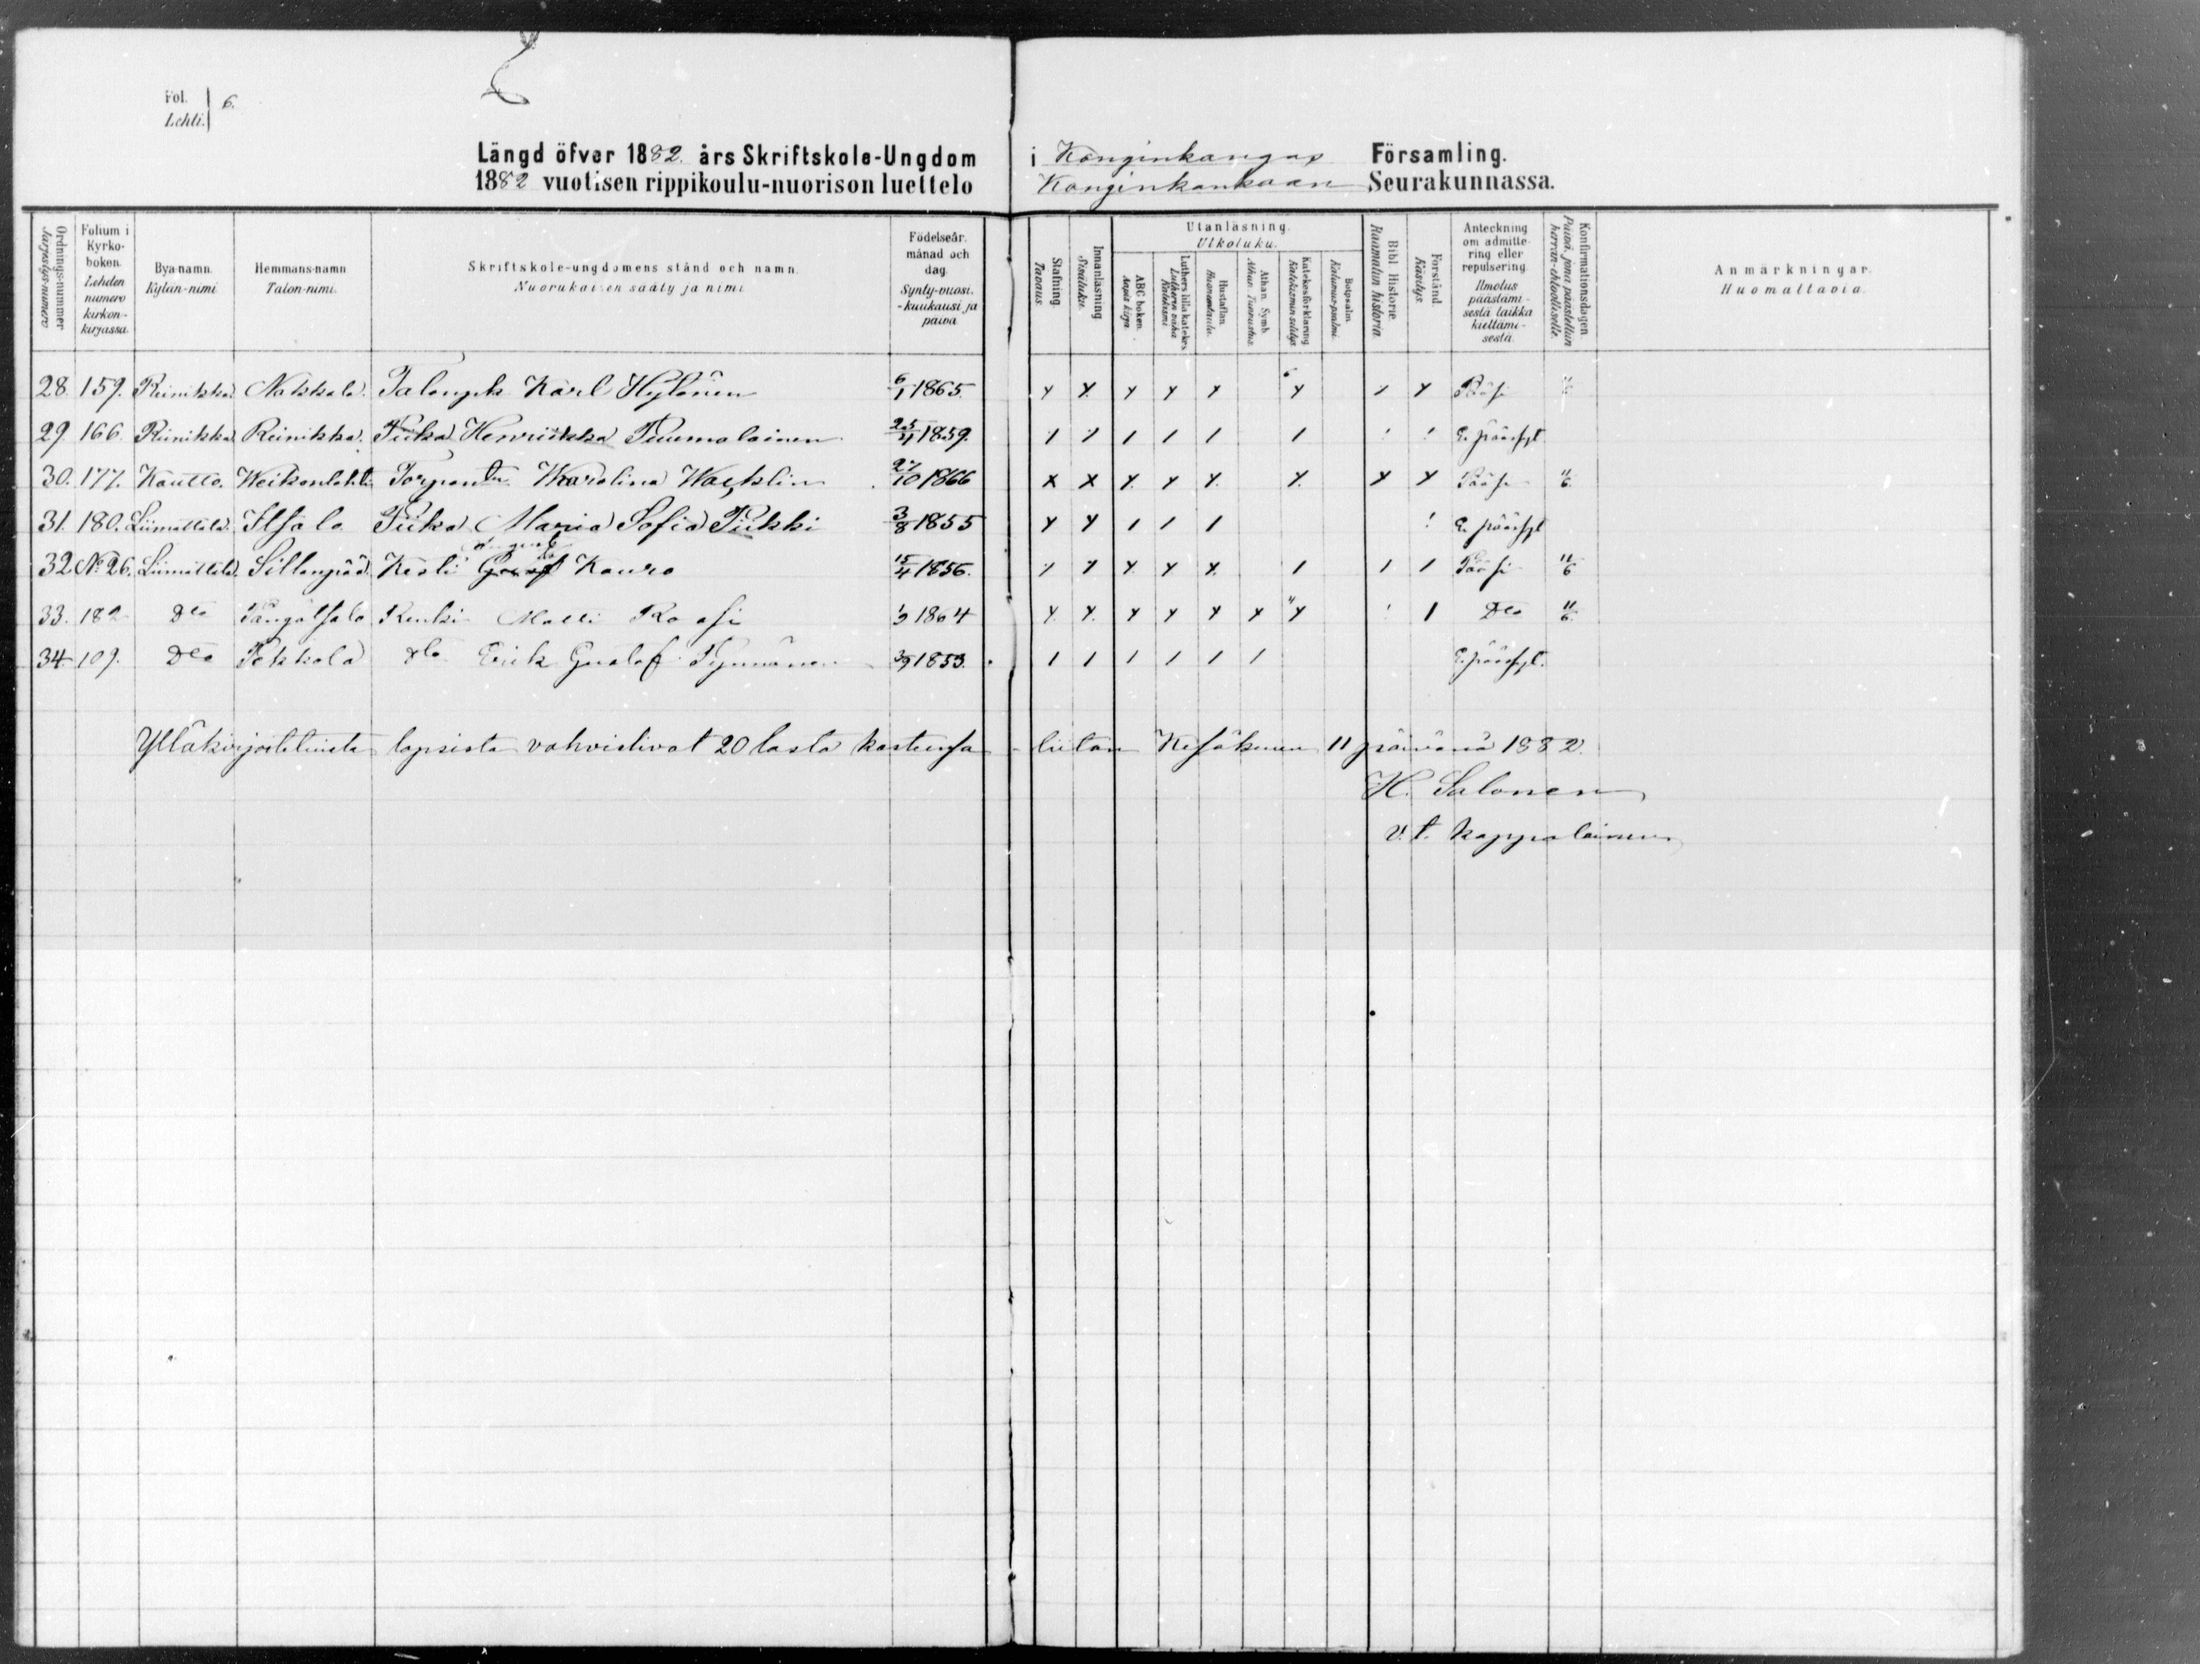 Fol. 6.
Lehti.
Längd öfver 1882. års Skriftskole-Ungdom i Konginkangas Församling.
1882 vuotisen rippikoulu-nuorison luettelo Konginkankaan Seurakunnassa.
Ordnings-nummer Järjestys-numero
Folium i Kyrko-boken. Lehden numero kirkon-kirjassa.
Bya-namn. Kylän-nimi
Hemmans-namn Talon-nimi.
Skriftskole-ungdomens stånd och namn. Nuorukaisen sääty ja nimi
Födelseår, månad och dag. Synty-vuosi, -kuukausi ja päivä
Stafning. Tavaus.
Innanläsning Sisäluku.
Utanläsning. Ulkoluku.
ABC boken. Aapis kirja.
Luthers lilla katekes. Lutherin vähä Katekismi
Hustaflan. Huoneentaulu.
Athan. Symb. Athan. Tunnustus.
Katekesförklaring Katekismun selitys.
Botpsalm. Katumus-psalmi.
Bibl Historie Raamatun historia.
Förstånd Käsitys.
Anteckning om admitte-ring eller repulsering Ilmoitus päästämi-sestä taikka kieltämi-sestä.
Konfirmationsdagen. Päivä, jona päästettiin herran-ehtoolliselle.
Anmärkningar. Huomattavia.
28. 159. Reinikka Nokkala. Talonpk Karl Hylönen 6/1 1865. x x x x x 6 x / x Pääsi 11/6
29. 166. Reinikka Reinikka. Piika Henriikka Tuumalainen 25/4 1859. / / / / / / / / Ei päässyt
30. 177. Kautto. Torpantr Karolina Wacklin 27/10 1866 x x x x x x x x Pääsi 11/6
31. 180. Liimattala. Piika Maria Sofia Piikki 3/8 1855 x x / / / / Ei päässyt
32 No 26. Liimattala. Sillanpää Kesti August Kauro 15/4 1856. / / x x x / / / Pääsi 11/6
33. 182 Dto Renki Matti 1864 x x x x x x x / / Dto 11/6
34 109. Dto Pekkola dto Erik Gustaf 1853. / / / / / / Ei päässyt.
Ylläkirjoitetuista lapsista vahvistivat 20 lasta kasteensa liiton Kesäkuun 11 päivänä 1882.
H. Salonen
v. t. kappalainen